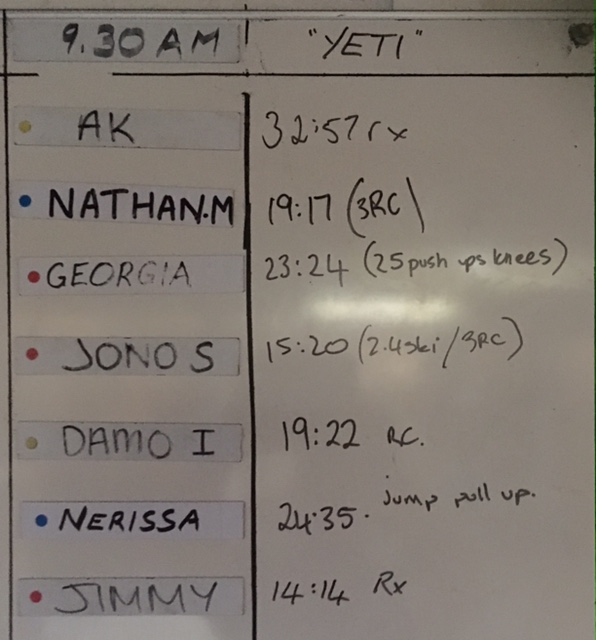 9.30 AM "YETI"
AK 32:57 rx
NATHAN.M 19:17 (3RC)
GEORGIA 23:24 (25 push ups knees)
JONO S 15:20 (2.4ski/3RC)
DAMO I 19:22 RC.
NERISSA 24:35. jump pull up.
JIMMY 14:14 Rx